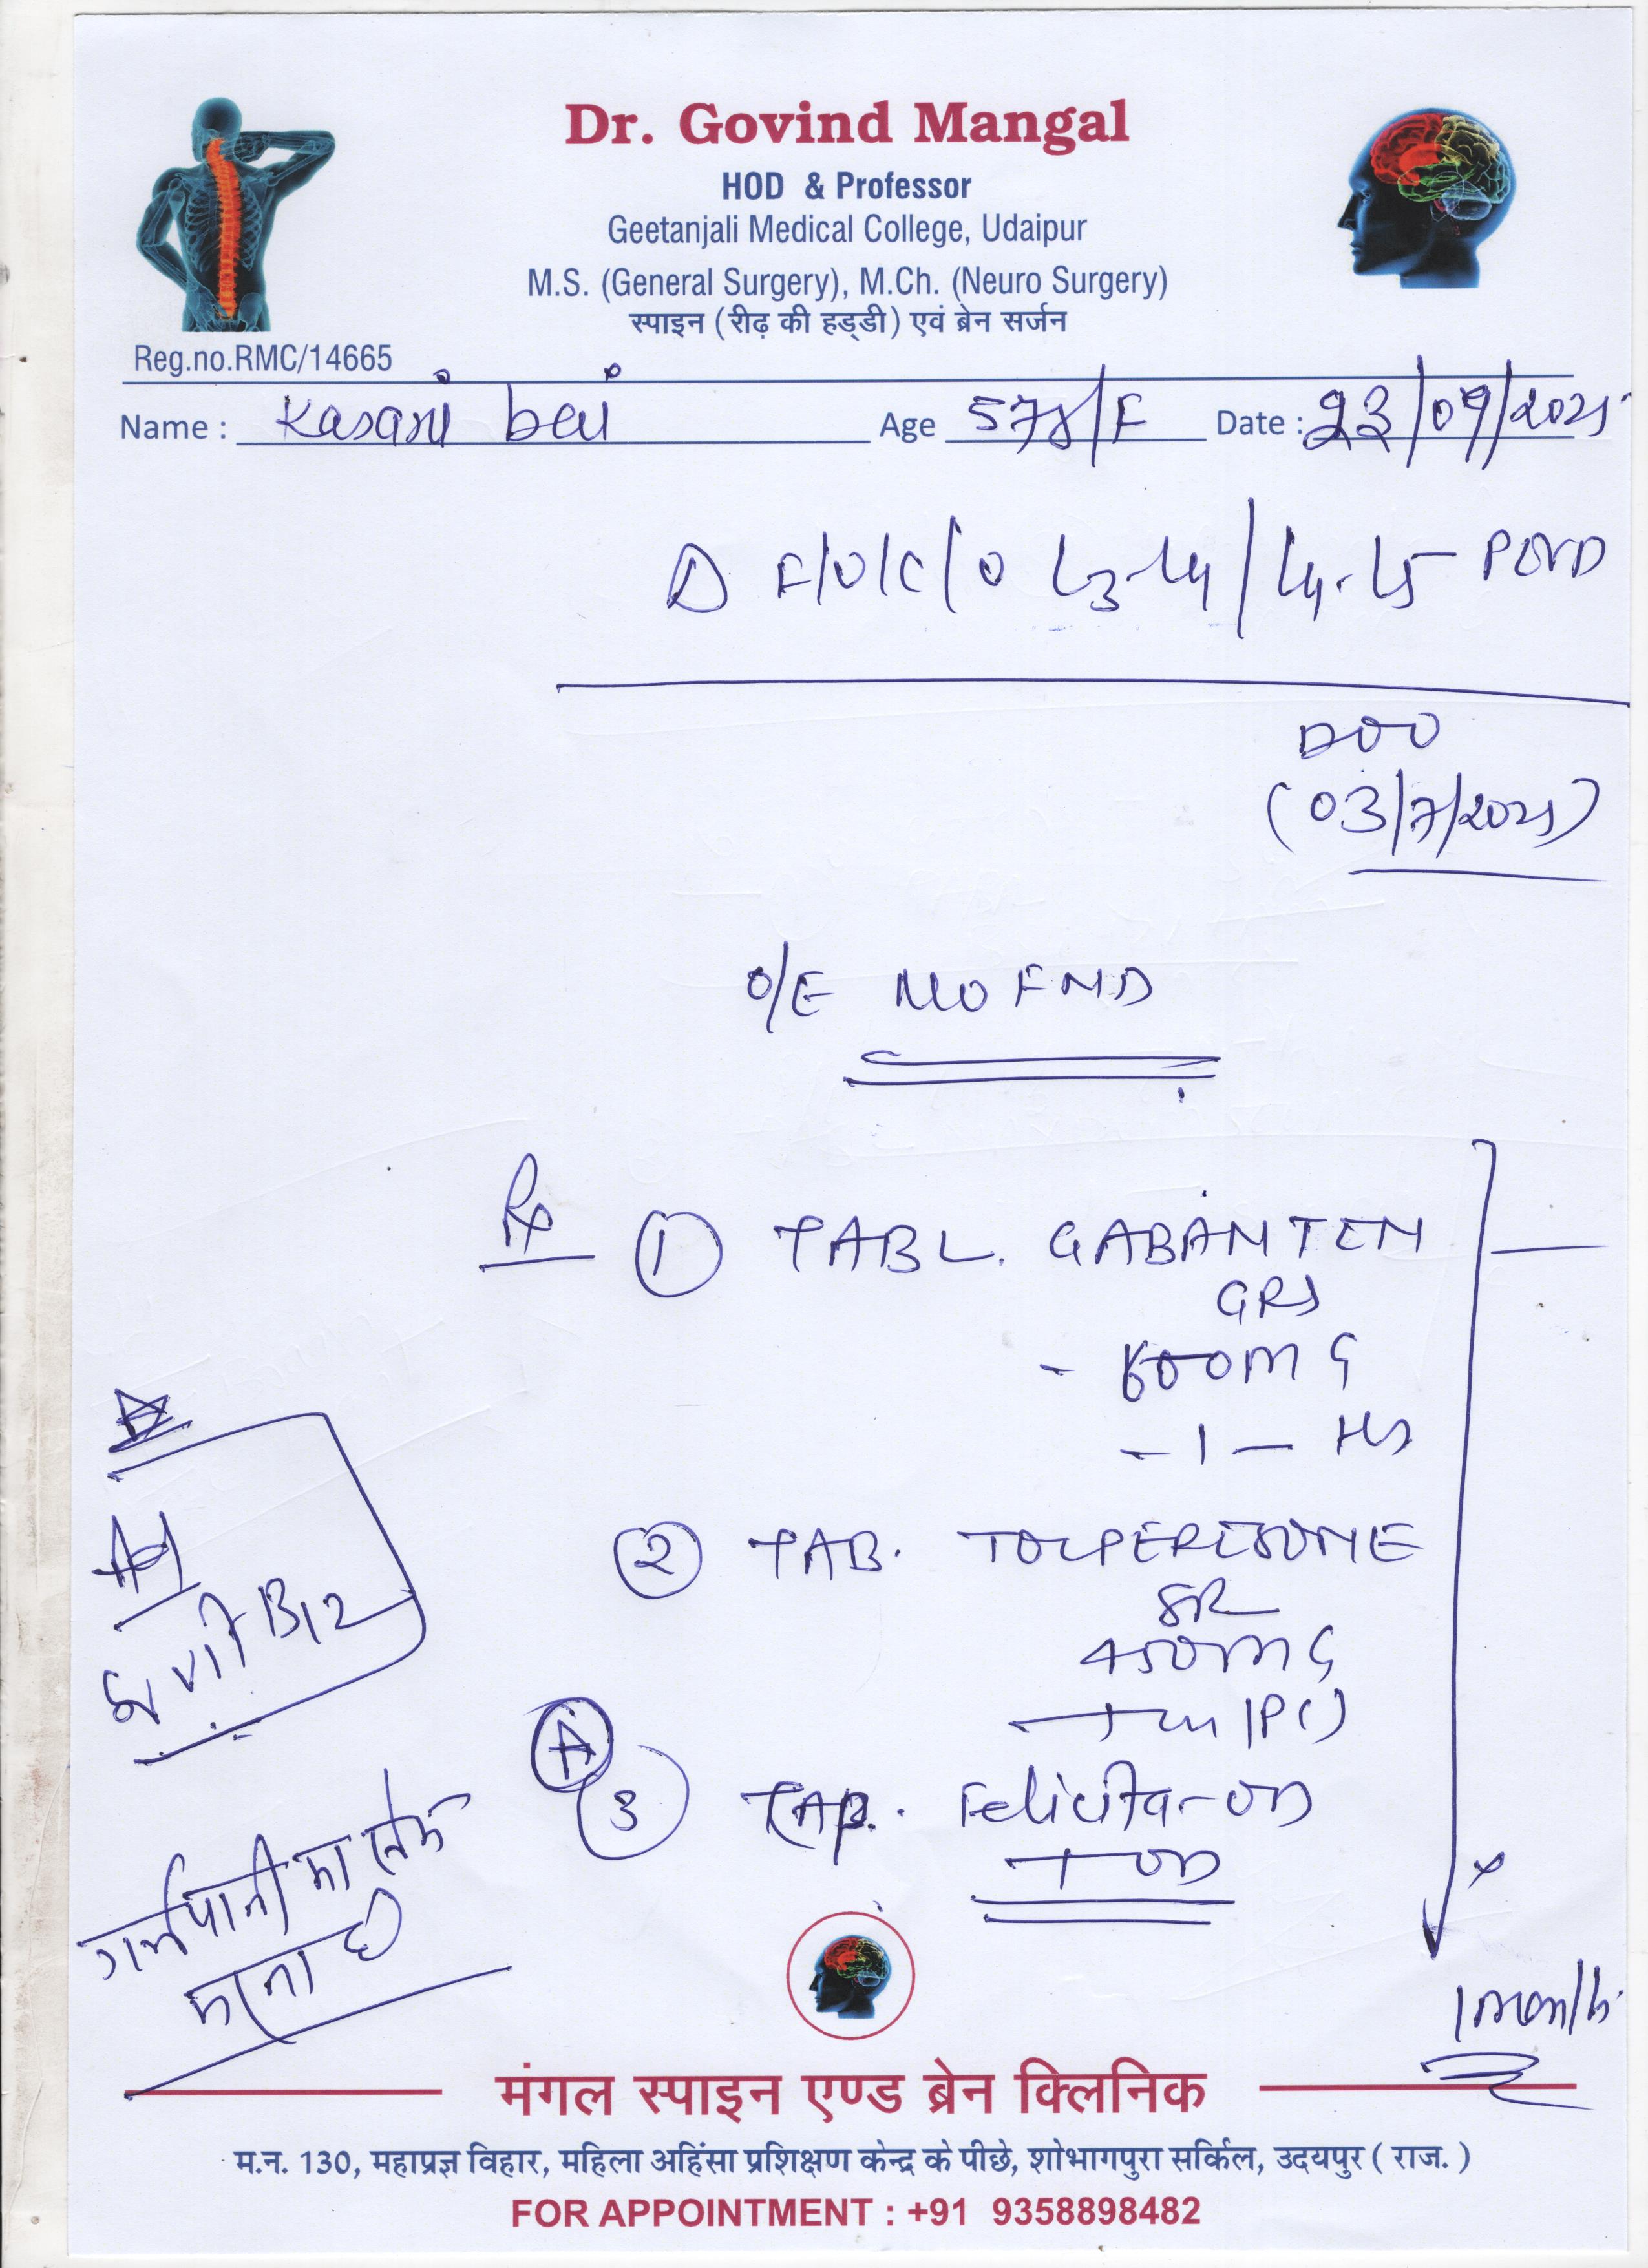 Dr. Govind Mangal
HOD & Professor
Geetanjali Medical College, Udaipur
M.S. (General Surgery), M.Ch. (Neuro Surgery)
स्पाइन (रीढ़ की हड्डी) एवं ब्रेन सर्जन
Reg.no.RMC/14665
Name : Kasani bai Age 57y/F Date : 23/09/2025
F/U/C/O L3-L4/L4-L5
DOO
(03/7/2025)
O/E NO FND
Rx ① TABL. GABANTEN
GRS
- 600MG
- 1 - HS
② TAB. TOLPERISONE
SR
450MG
B12
A
③ TAB. Felicita-OD
OD
गर्म पानी का सेक
करना है
1 month
मंगल स्पाइन एण्ड ब्रेन क्लिनिक
म.न. 130, महाप्रज्ञ विहार, महिला अहिंसा प्रशिक्षण केन्द्र के पीछे, शोभागपुरा सर्किल, उदयपुर ( राज. )
FOR APPOINTMENT : +91 9358898482